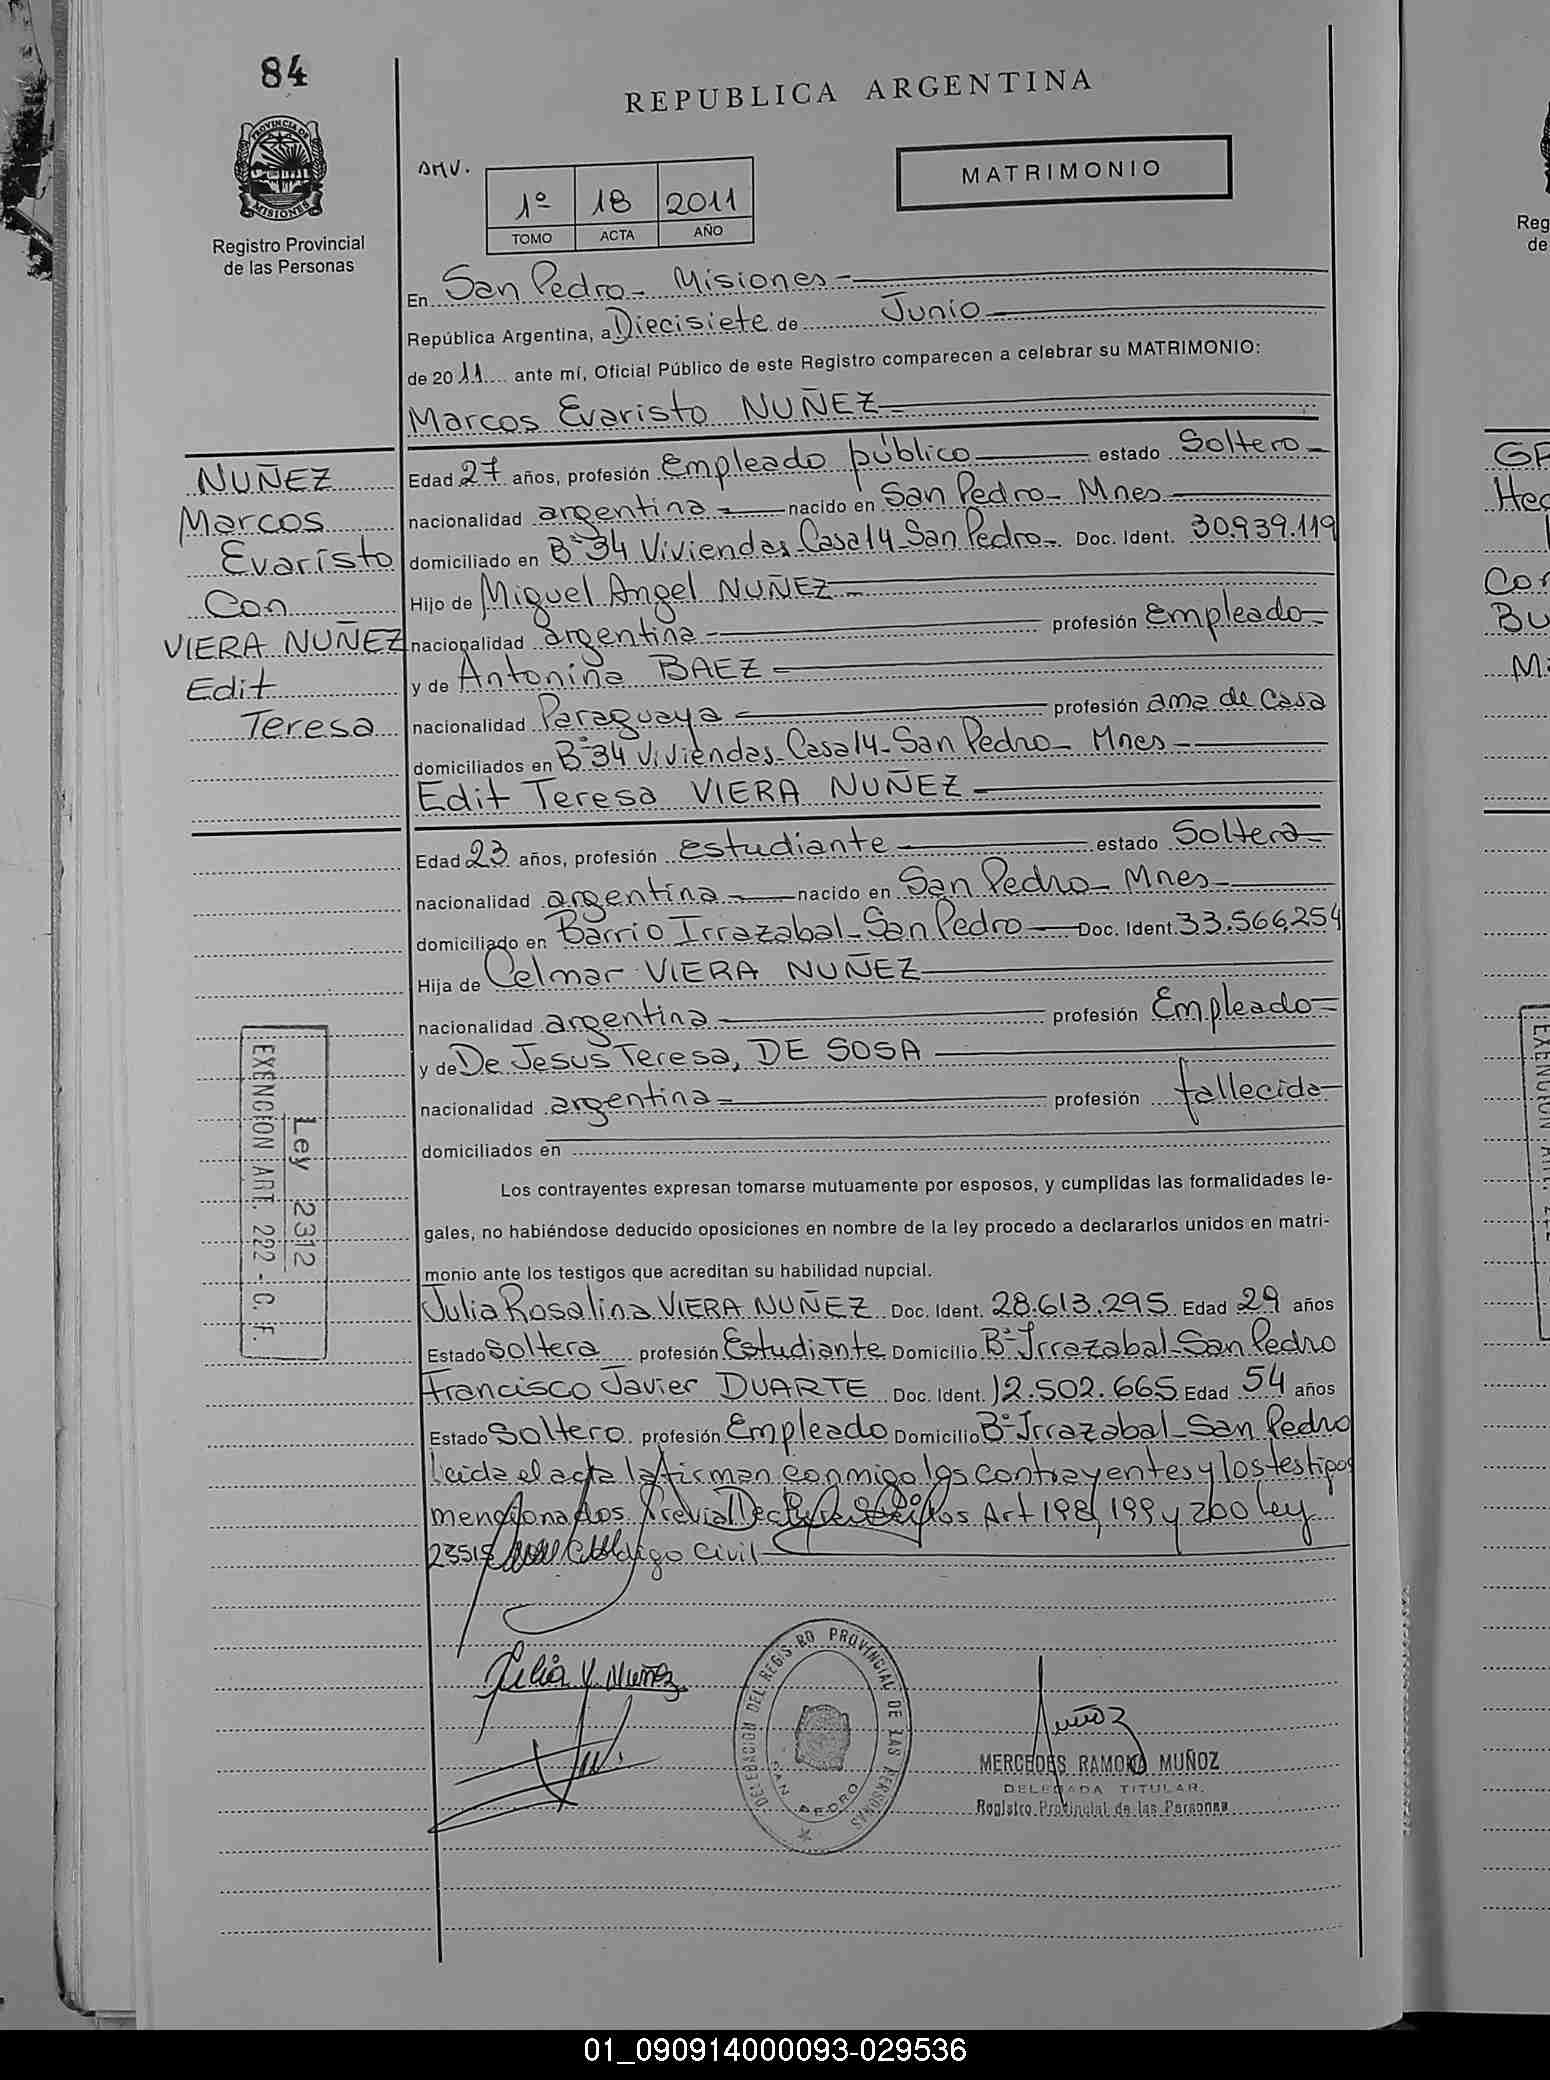 84
REPUBLICA ARGENTINA
PROVINCIA DE
MISIONES
Registro Provincial
de las Personas
DMV.
1º 18 2011
TOMO ACTA AÑO
MATRIMONIO
En San Pedro - Misiones
República Argentina, a Diecisiete de Junio
de 2011 ante mí, Oficial Público de este Registro comparecen a celebrar su MATRIMONIO:
Marcos Evaristo NUÑEZ
NUÑEZ
Marcos
Evaristo
Con
VIERA NUÑEZ
Edit
Teresa
Edad 27 años, profesión Empleado público estado Soltero
nacionalidad argentina nacido en San Pedro - Mnes
domiciliado en Bº 34 Viviendas - Casa 14 - San Pedro - Doc. Ident. 30.939.119
Hijo de Miguel Angel NUÑEZ
nacionalidad argentina profesión Empleado
y de Antonina BAEZ
nacionalidad Paraguaya profesión ama de casa
domiciliados en Bº 34 Viviendas - Casa 14 - San Pedro - Mnes
Edit Teresa VIERA NUÑEZ
Edad 23 años, profesión estudiante estado Soltera
nacionalidad argentina nacido en San Pedro - Mnes
domiciliado en Barrio Irrazabal - San Pedro Doc. Ident. 33.566.254
Hija de Celmar VIERA NUÑEZ
nacionalidad argentina profesión Empleado
y de De Jesus Teresa, DE SOSA
nacionalidad argentina profesión fallecida
domiciliados en
Ley 2312
EXENCION ART. 222 - C. F.
Los contrayentes expresan tomarse mutuamente por esposos, y cumplidas las formalidades le-
gales, no habiéndose deducido oposiciones en nombre de la ley procedo a declararlos unidos en matri-
monio ante los testigos que acreditan su habilidad nupcial.
Julia Rosalina VIERA NUÑEZ Doc. Ident. 28.613.295 Edad 29 años
Estado Soltera profesión Estudiante Domicilio Bº Irrazabal - San Pedro
Francisco Javier DUARTE Doc. Ident. 12.502.665 Edad 54 años
Estado Soltero profesión Empleado Domicilio Bº Irrazabal - San Pedro
Leida el acta la firman conmigo los contrayentes y los testigos
mencionados. Previa Art 198, 199 y 200 Ley
23515 Codigo Civil
Julia V Nuñez
DELEGACION DEL REGISTRO PROVINCIAL DE LAS PERSONAS
SAN PEDRO
Muñoz
MERCEDES RAMONA MUÑOZ
DELEGADA TITULAR
Registro Provincial de las Personas
01_090914000093-029536